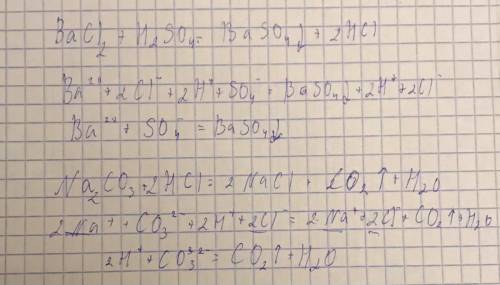 BaCl₂ + H₂SO₄ = BaSO₄↓ + 2HCl
Ba²⁺ + 2Cl⁻ + 2H⁺ + SO₄⁻ = BaSO₄↓ + 2H⁺ + 2Cl⁻
Ba²⁺ + SO₄⁻ = BaSO₄↓
Na₂CO₃ + 2HCl = 2NaCl + CO₂↑ + H₂O
2Na⁺ + CO₃²⁻ + 2H⁺ + 2Cl⁻ = 2Na⁺ + 2Cl⁻ + CO₂↑ + H₂O
2H⁺ + CO₃²⁻ = CO₂↑ + H₂O